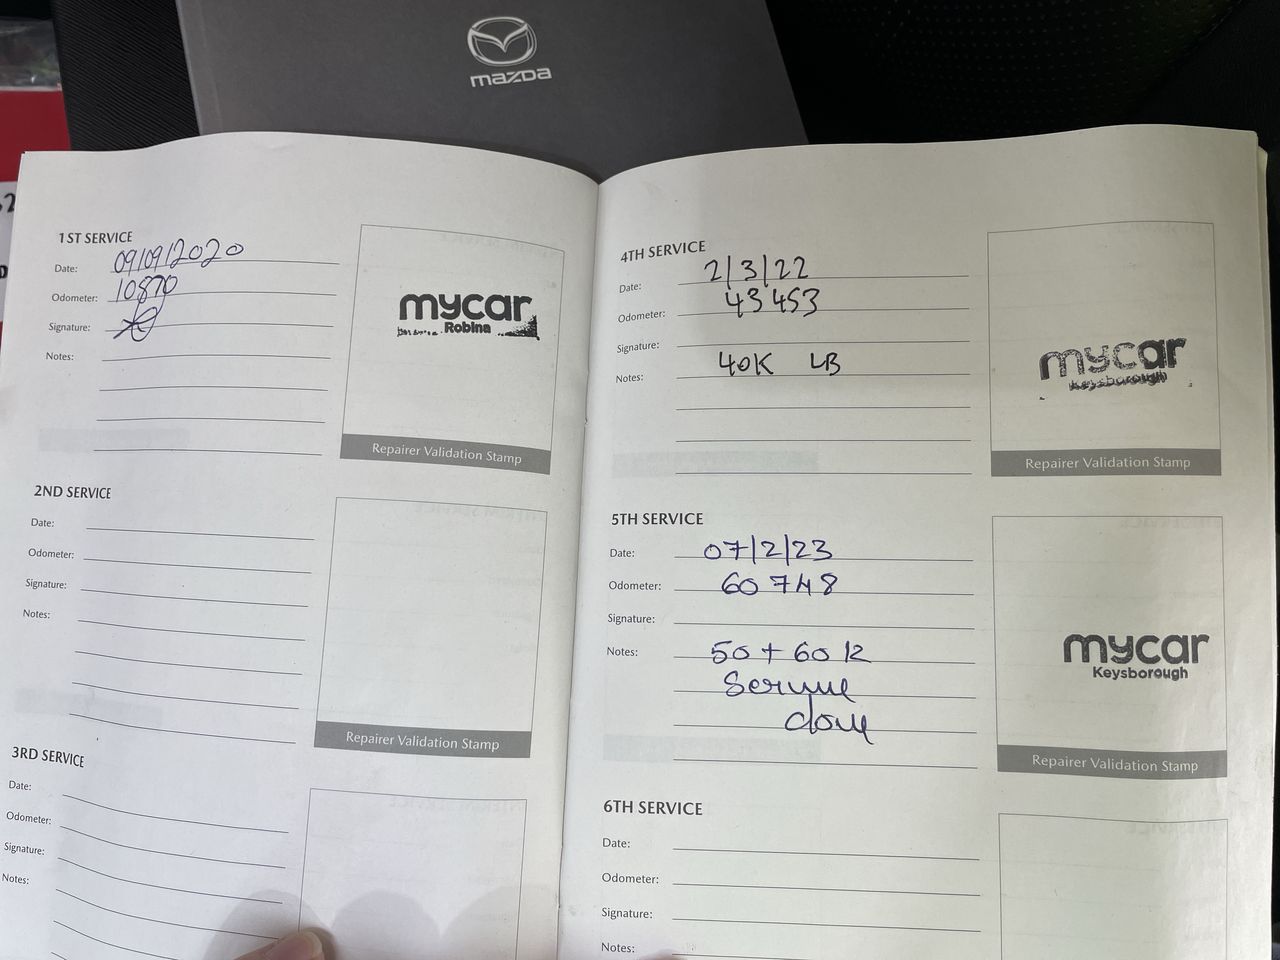 mazda
1ST SERVICE
Date: 09/09/2020
Odometer: 10870
Signature:
Notes:
mycar
Robina
Repairer Validation Stamp
2ND SERVICE
Date:
Odometer:
Signature:
Notes:
Repairer Validation Stamp
3RD SERVICE
Date:
Odometer:
Signature:
Notes:
4TH SERVICE
Date: 2/3/22
Odometer: 43453
Signature:
Notes: 40K LB
mycar
Keysborough
Repairer Validation Stamp
5TH SERVICE
Date: 07/2/23
Odometer: 60748
Signature:
Notes: 50 + 60 K
Service
done
mycar
Keysborough
Repairer Validation Stamp
6TH SERVICE
Date:
Odometer:
Signature:
Notes: